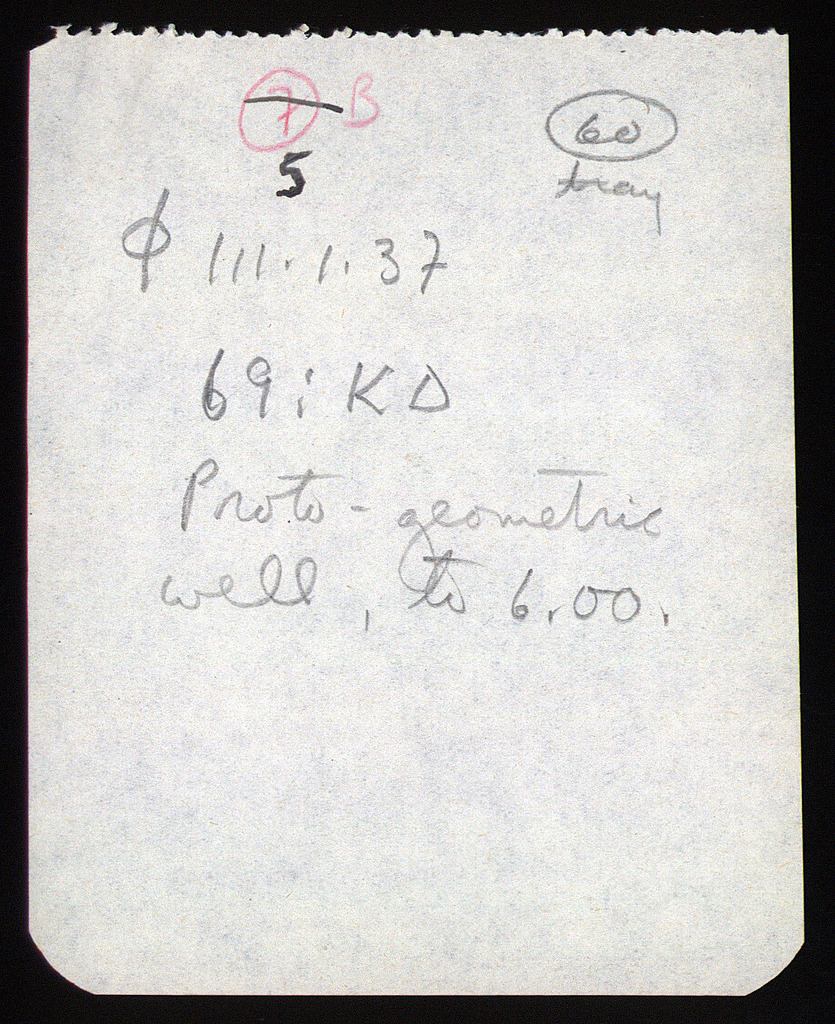 7 B
60
5
tray
φ 111.1.37
69: KD
Proto-geometric
well, to 6.00.